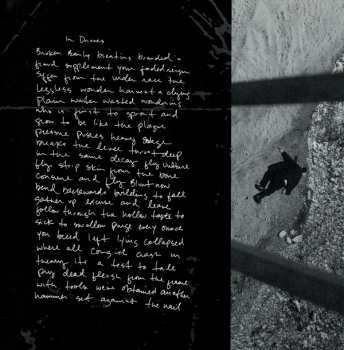 In Droves
Broken Bently beating branded a
fraud supplement your faded reign
from the under race the
legless wonder harvest a dying
plain number wasted wondering
who is first to sprout and
grow to be like the plague
pressure pushes heavy
breaks the lever throat deep
in the same decay fly vulture
fly strip skin from the bone
consume and fly blunt now
bend backwards building to fall
gather up excuse and leave
follow through the hollow taste to
sick to swallow purge every ounce
you bleed left lying collapsed
where all congrol crash in
theory its a test to take
pry dead flesh from the frame
with tools were obtained another
hammer set against the nail